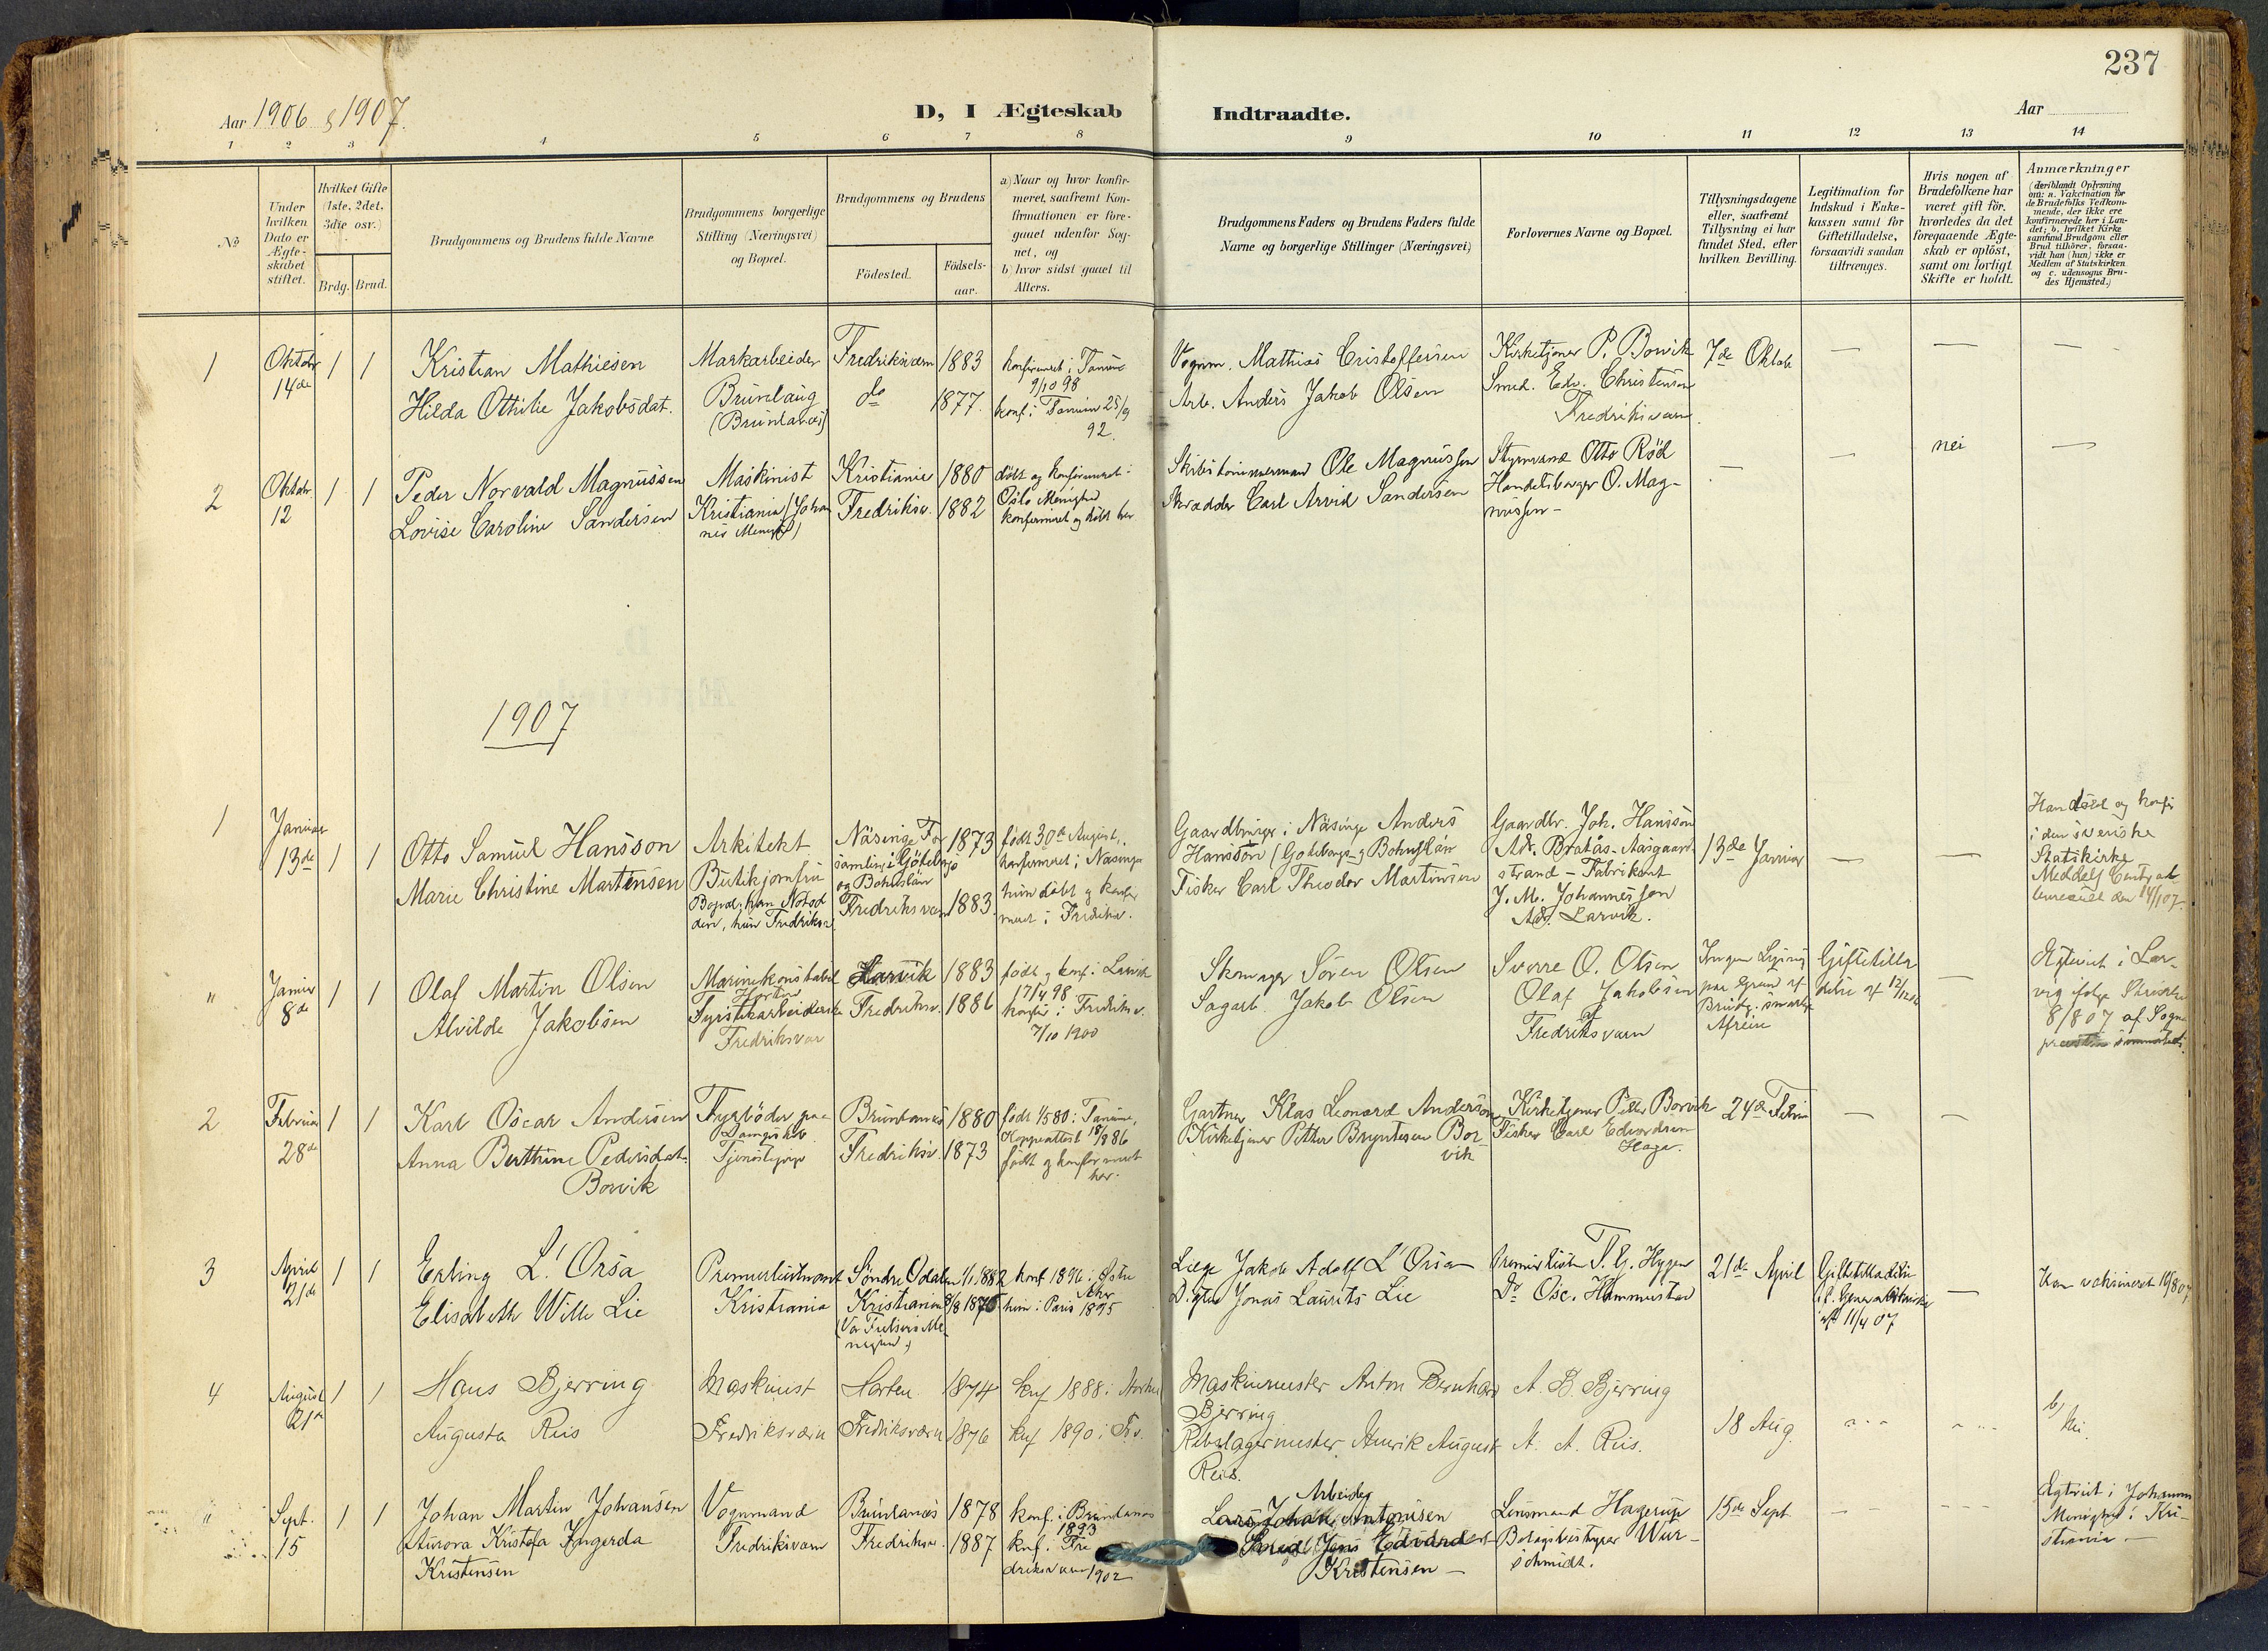 237
Aar 1906 & 1907.
D, I Ægteskab Indtraadte.
Aar
1 2 3 4 5 6 7 8 9 10 11 12 13 14
No
Under hvilken Dato er Ægteskabet stiftet.
Hvilket Gifte (1ste, 2det, 3die osv.)
Brdg. Brud.
Brudgommens og Brudens fulde Navne
Brudgommens borgerlige Stilling (Næringsvei) og Bopæl.
Brudgommens og Brudens
Födested.
Födselsaar.
a) Naar og hvor konfirmeret, saafremt Konfirmationen er foregaaet udenfor Sognet, og
b) hvor sidst gaaet til Alters.
Brudgommens Faders og Brudens Faders fulde Navne og borgerlige Stillinger (Næringsvei)
Forlovernes Navne og Bopæl.
Tillysningsdagene eller, saafremt Tillysning ei har fundet Sted, efter hvilken Bevilling.
Legitimation for Indskud i Enkekassen samt for Giftetilladelse, forsaavidt saadan tiltrænges.
Hvis nogen af Brudefolkene har været gift för, hvorledes da det foregaaende Ægteskab er oplöst, samt om lovligt Skifte er holdt.
Anmærkninger
(deriblandt Oplysning om: a. Vakcination for de Brudefolks Vedkommende, der ikke ere konfirmerede her i Landet; b. hvilket Kirkesamfund Brudgom eller Brud tilhörer, forsaavidt han (hun) ikke er Medlem af Statskirken og c. udensogns Brudes Hjemsted.)
1 Oktobr 14de 1 1
Kristian Mathiesen
Hilda Othilie Jakobsdat.
Markarbeider
Brunlaug
(Brunlanes)
Fredriksværn 1883
do 1877.
9/10 98
konf. i Tanum 25/9
92.
Vognm. Mathias Cristoffersen
Arb. Anders Jakob Olsen
Kirketjener P. Borvik
Smed. Edv. Christensen
Fredriksværn
7de Oktob
2 Oktobr. 12 1 1
Peder Norvald Magnussen
Lovise Caroline Sandersen
Maskinist
Kristiania (Johannes Menigh)
Kristiania 1880
Fredriksv. 1882
döbt og konfirmeret i
Oslo Menighed
konfirmeret og döbt her
Skibstømmermand Ole Magnussen
Skrædder Carl Arvid Sandersen
Styrmand Otto Röd
Handelsborger O. Magnussen-
nei
1907
1 Januar 13de 1 1
Otto Samuel Hansson
Marie Christine Martensen
Arkitekt
Butikjomfru
Bopæl: han Notodden, hun Fredriksv.
Näsinge Församling i Göteborgs og Bohuslän 1873
Fredriksværn 1883.
født 30te August,
konfirmeret i Näsinge
hun döbt og konfirmeret i Fredriksv.
Gaardbruger i Näsinge Anders
Hansson (Goteborgs- og Bohuslän
Fisker Carl Theodor Martinsen
Gaardbr. Joh. Hansson
Adr. Bratas-Aasgaardstrand - Fabrikant
J. M. Johannessen
Adr. Larvik.
13de Januar
Han döbt og konfir
i den svenske
Statskirke
" Januar 8de 1 1
Olaf Martin Olsen
Alvilde Jakobsen
Marinekonstabel
Horten
Fyrstikarbeiderske
Fredriksvær
Larvik 1883
Fredriksv. 1886
født og konf. i Larvik
17/4 98
konfir. i Fredriksv.
7/10 1900
Søren Olsen
Sagarb. Jakob Olsen
Sverre O. Olsen
Olaf Jakobsen
Fredriksværn
Ingen Lysning
paa Grund af
Brudg. snarlige
Afreise
Giftetilladelse af 12/1206
Ægteviet i Larvig ifølge Skrivelse
8/8 07 af Sogne
2 Februar 28de 1 1
Karl Oscar Andersen
Anna Berthine Pedersdat.
Borvik
Fyrböder paa
Dampskib
Tjenestepige
Brunlanes 1880
Fredriksv. 1873
født 1/5 80 i Tanum,
Koppeattest 18/8 86
født og konfirmeret
her.
Gartner Klas Leonard Anderson
Kirketjener Petter Bryntesen Borvik
Kirketjener Petter Borvik
Fisker Carl Edvardsen
Hage.
24de Febru
3 April 21de 1 1
Erling L'Orsa
Elisabeth Wille Lie
Premierlieutnant
Kristiania
Søndre Odalen 1/1 1882
Kristiania 8/8 1875
(Vor Frelsers Menighed)
konf 1896 i Østre
hun i Paris 1895
Læge Jakob Adolf L'Orsa
Digter Jonas Laurits Lie
Premierløitn. T. G. Hygen
Do Osc. Hammerstad
21de April
Giftetilladelse
11/4 07
Han vaksineret 10/8 07
4 August 21de 1 1
Hans Bjerring
Augusta Riis
Maskinist
Fredriksværn
Horten 1874
Fredriksværn 1876
konf 1888 i Horten
konf 1890 i Fr.v.
Maskinmester Anton Bernhard
Bjerring
Rebslagermester Henrik August
Reis.
A. B. Bjerring
A. A. Riis.
18 Aug.
b,
Nei.
" Sept. 15 1 1
Johan Martin Johansen
Aurora Kristofa Ingerda
Kristensen
Vognmand
Fredriksværn
Brunlanes 1878
Fredriksv. 1887
konf. i Brunlanes
1893
konf. i Fredriksværn 1902
Arbeider
Lars Johan Antonisen
Smed Jens Edvard
Kristensen -
Lensmand Hagerup
Bolagsbestyrer Wurschmidt.
15de Sept
Ægteviet i Johannes
Menighed i Kristiania -